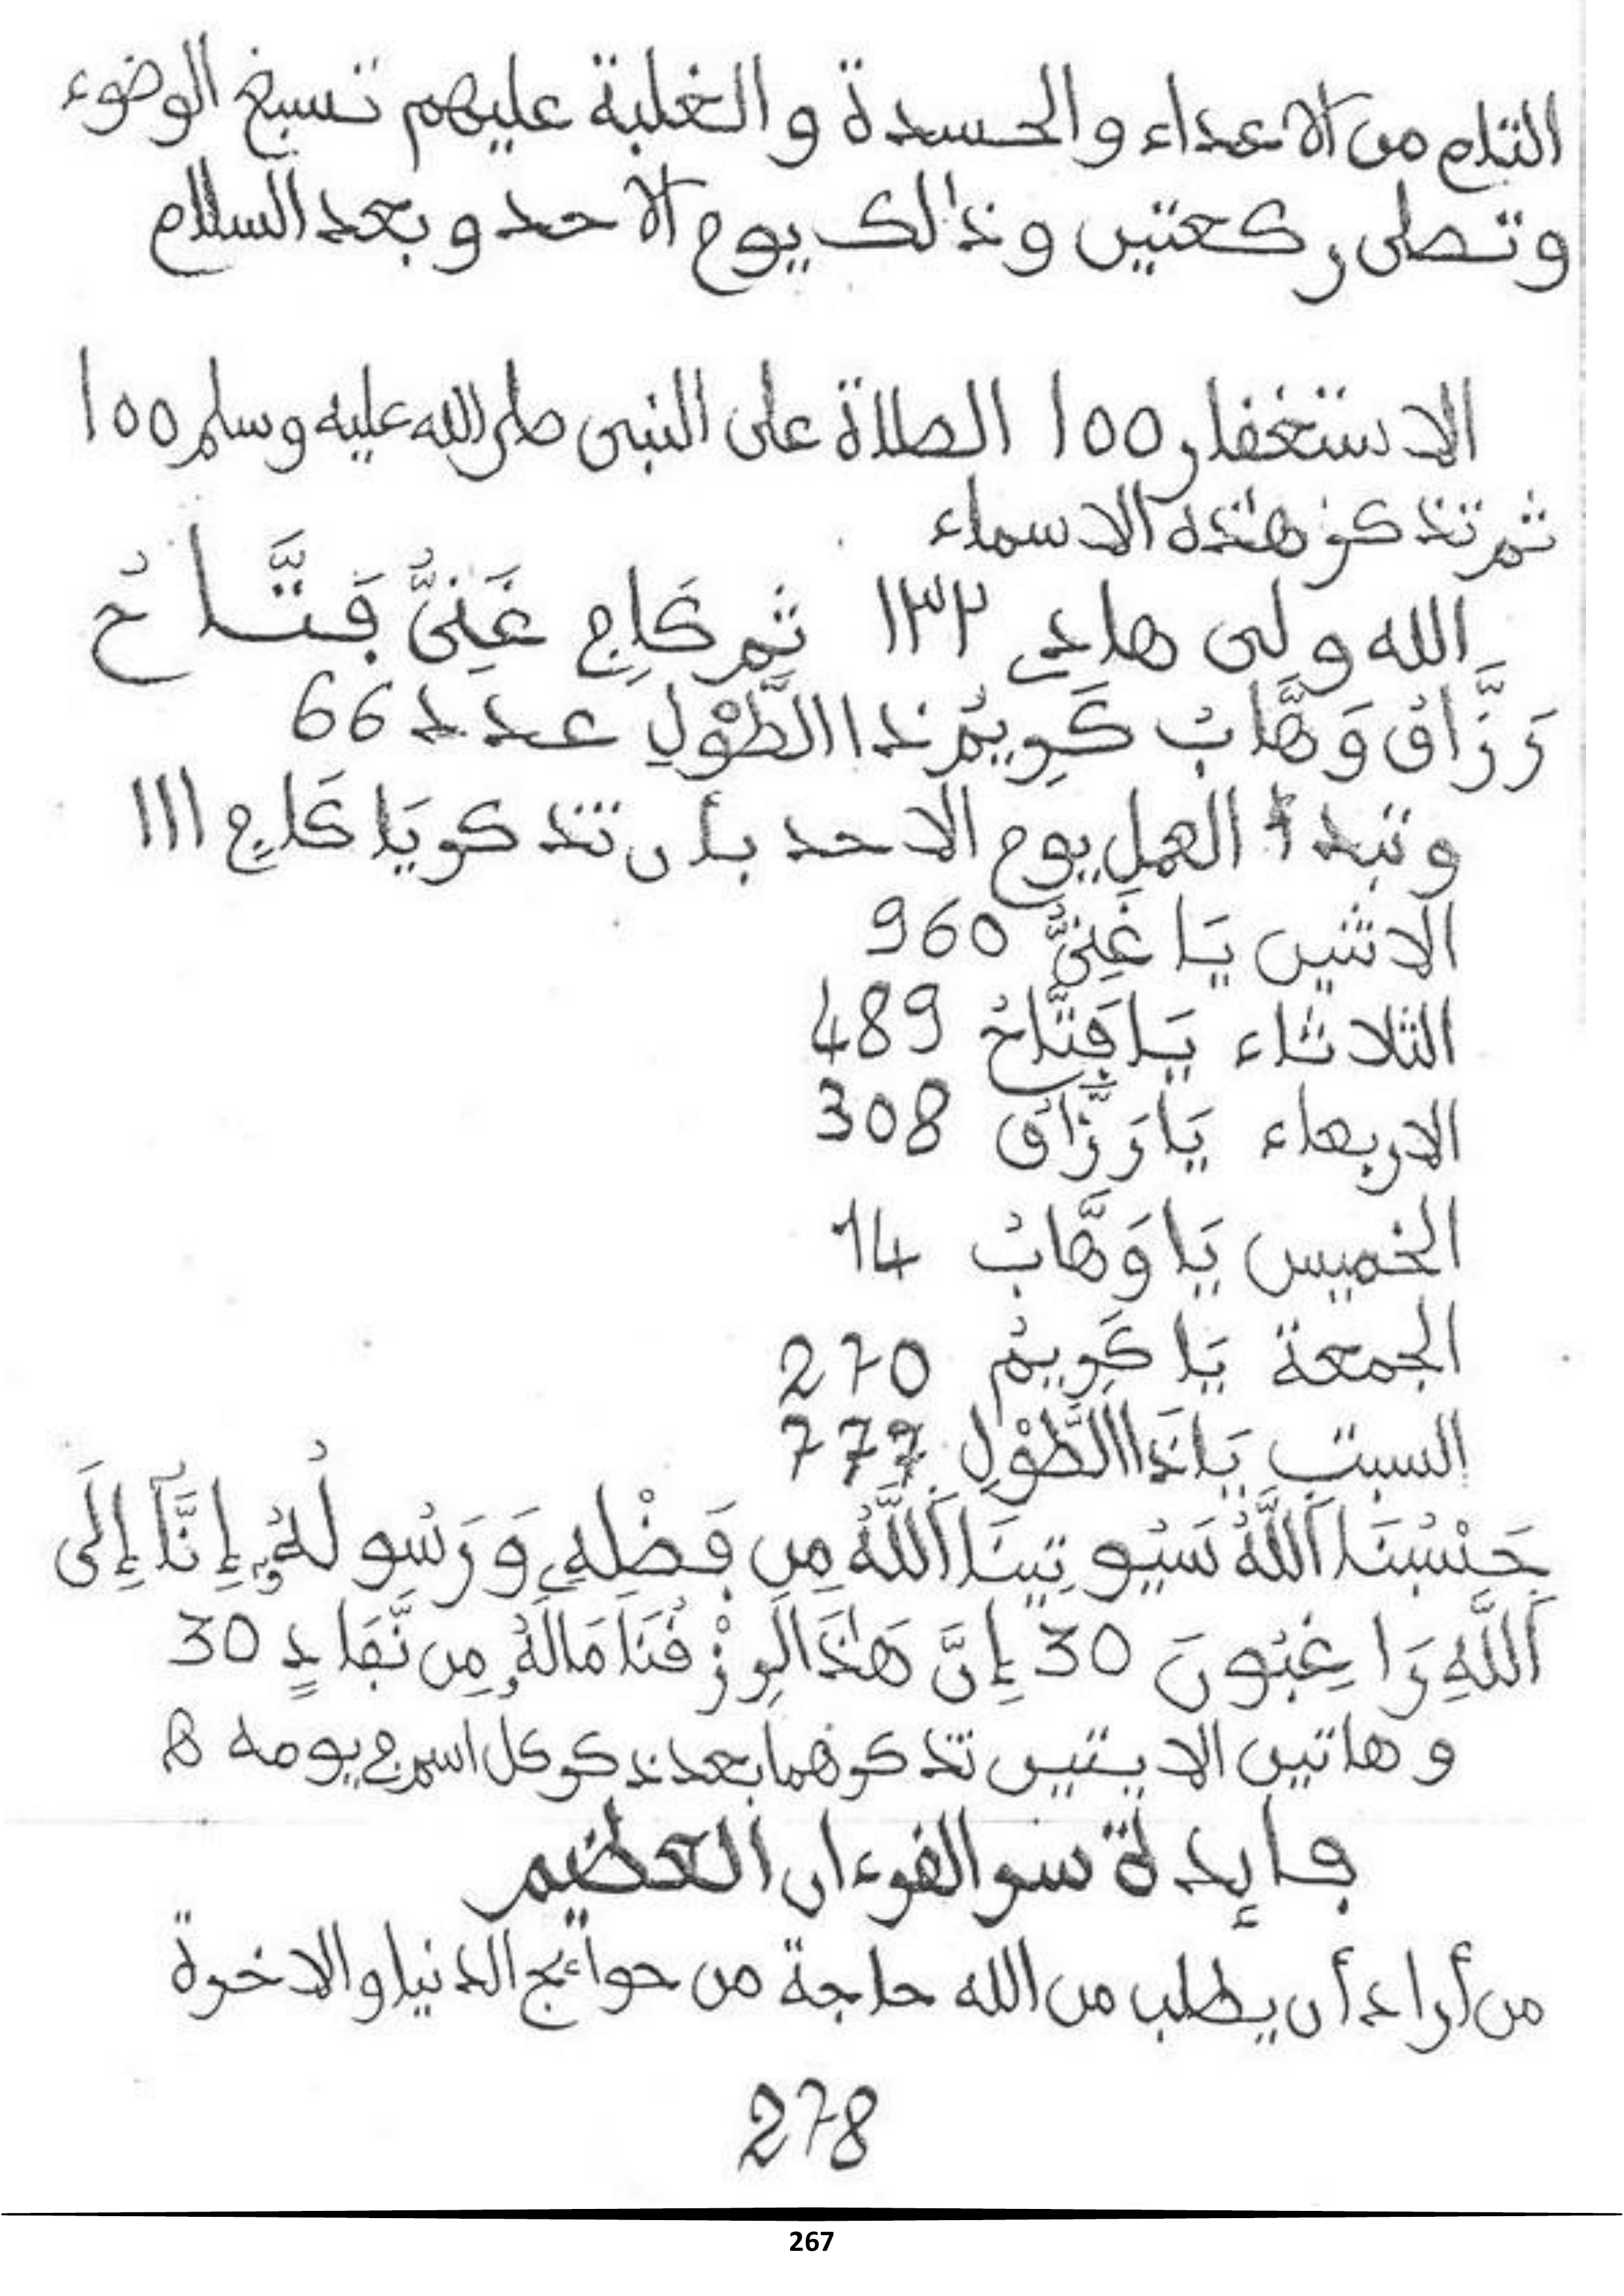 التام من الاعداء والحسدة والغلبة عليهم تسبغ الوضوء
وتصلى ركعتين وذالك يوم الاحد وبعد السلام
الاستغفار 100 الصلاة على النبى صلى الله عليه وسلم 100
ثم تذكر هذه الاسماء
الله ولى هادِى ١٣٢ ثم كَافِى غَنِىٌّ فَتَّاحُ
رَزَّاقُ وَهَّابُ كَرِيمُ ذا الطَّوْلِ عدد 66
وتبدأ العمل يوم الاحد بأن تذكر يَا كَافِى 111
الاثنين يَا غَنِىُّ 960
الثلاثاء يَا فَتَّاحُ 489
الاربعاء يَا رَزَّاقُ 308
الخميس يَا وَهَّابُ 14
الجمعة يَا كَرِيمُ 270
السبت يَا ذَا الطَّوْلِ 777
حَسْبُنَا اَللَّهُ سَيُوتِينَا اَللَّهُ مِن فَضْلِهِ وَرَسُولُهُ إِنَّا إِلَى
اَللَّهِ رَاغِبُونَ 30 إِنَّ هَٰذَا لَرِزْقُنَا مَالَهُ مِن نَّفَادٍ 30
وهاتين الايتين تذكرهما بعد ذكر كل اسم فى يومه
فايدة سر القرءان العظيم
من أراد أن يطلب من الله حاجة من حوائج الدنيا والاخرة
278
267